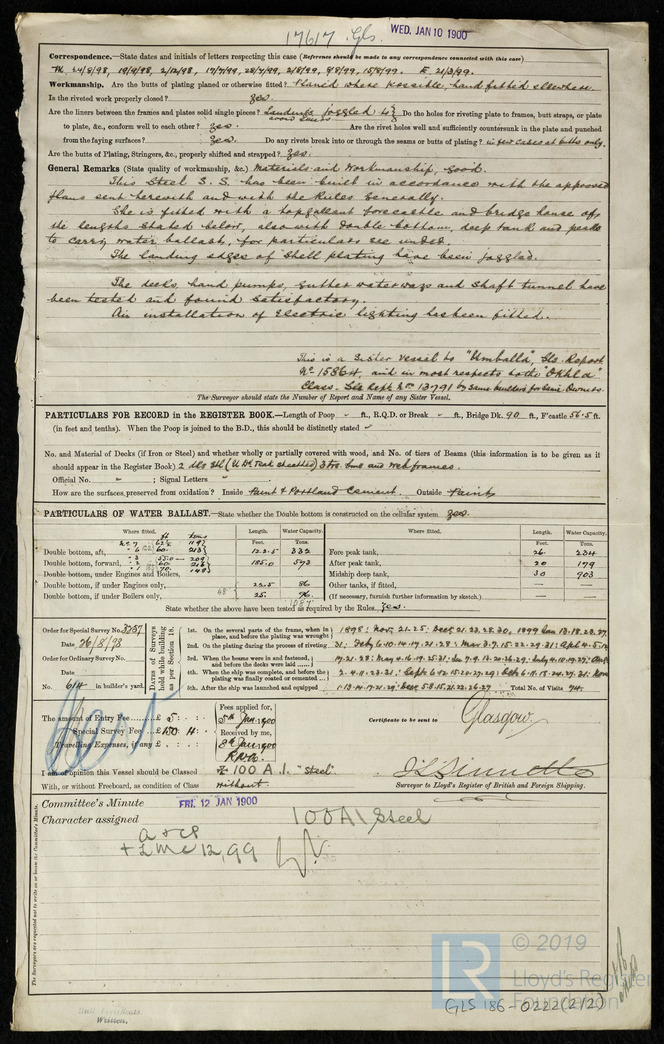 17617 Gls.
WED. JAN 10 1900
Correspondence.—State dates and initials of letters respecting this case (Reference should be made to any correspondence connected with this case)
M 24/8/98, 19/9/98, 2/12/98, 17/7/99, 28/7/99, 2/8/99, 9/8/99, 15/8/99. E 21/3/99.
Workmanship. Are the butts of plating planed or otherwise fitted? Planed where possible, hand fitted elsewhere.
Is the riveted work properly closed? yes.
Are the liners between the frames and plates solid single pieces? Landings joggled Do the holes for riveting plate to frames, butt straps, or plate
to plate, &c., conform well to each other? yes. Are the rivet holes well and sufficiently countersunk in the plate and punched
from the faying surfaces? yes. Do any rivets break into or through the seams or butts of plating? in few cases at butts only.
Are the butts of Plating, Stringers, &c., properly shifted and strapped? yes.
General Remarks (State quality of workmanship, &c.) Materials and Workmanship, good.
This Steel S.S. has been built in accordance with the approved
plans sent herewith and with the Rules generally.
She is fitted with a topgallant forecastle and bridge house of
the lengths stated below, also with double bottom, deep tank and peaks
to carry water ballast, for particulars see under.
The landing edges of shell plating have been joggled.
The decks, hand pumps, gutter waterways and shaft tunnel have
been tested and found satisfactory.
An installation of Electric lighting has been fitted.
This is a Sister vessel to "Umballa", Gls. Report
No. 15864, and in most respects to the "Okhla"
Class. Gls Rept. No 13791 by same builders for same Owners.
The Surveyor should state the Number of Report and Name of any Sister Vessel.
PARTICULARS FOR RECORD in the REGISTER BOOK.—Length of Poop - ft., R.Q.D. or Break - ft., Bridge Dk. 90 ft., F'castle 56.5 ft.
(in feet and tenths). When the Poop is joined to the B.D., this should be distinctly stated
No. and Material of Decks (if Iron or Steel) and whether wholly or partially covered with wood, and No. of tiers of Beams (this information is to be given as it
should appear in the Register Book) 2 dks Stl (U. Dk Teak sheathed) 3 trs bms and web frames.
Official No. - ; Signal Letters -
How are the surfaces preserved from oxidation? Inside Paint & Portland Cement. Outside Paint
PARTICULARS OF WATER BALLAST.—State whether the Double bottom is constructed on the cellular system yes.
Where fitted. Length. Water Capacity. Where fitted. Length. Water Capacity.
Feet. Tons. Feet. Tons.
Double bottom, aft, 122.5 332 Fore peak tank, 26 234
Double bottom, forward, 185.0 573 After peak tank, 20 179
Double bottom, under Engines and Boilers, Midship deep tank, 30 903
Double bottom, if under Engines only, 22.5 86 Other tanks, if fitted, — —
Double bottom, if under Boilers only, 25. 96 (If necessary, furnish further information by sketch.) — —
State whether the above have been tested as required by the Rules. yes.
Order for Special Survey No. 3257
Date 26/8/98
Order for Ordinary Survey No.
Date
No. 614 in builder's yard.
Dates of Surveys held while building as per Section 18.
1st. On the several parts of the frame, when in place, and before the plating was wrought
2nd. On the plating during the process of riveting
3rd. When the beams were in and fastened, and before the decks were laid
4th. When the ship was complete, and before the plating was finally coated or cemented
5th. After the ship was launched and equipped
1898: Nov. 21. 25: Dec. 21. 23. 28. 30, 1899 Jan 13. 18. 23. 27.
31: Feby 6. 10. 14. 17. 21. 28: Mar 3. 7. 15. 22. 29. 31: Apl 4. 5. 12.
Total No. of Visits 74.
The amount of Entry Fee £ 5 : :
Special Survey Fee £
Travelling Expenses, if any £
Fees applied for,
5th Jan 1900
Received by me,
8th Jan 1900
Certificate to be sent to Glasgow
I am of opinion this Vessel should be Classed 100 A.1. "Steel"
With, or without Freeboard, as condition of Class without.
Surveyor to Lloyd's Register of British and Foreign Shipping.
Committee's Minute FRI. 12 JAN 1900
Character assigned 100A1 Steel
a & cp
+ LMC 12,99
The Surveyors are requested not to write on or below the Committee's Minute.
© 2019
LR
Lloyd's Register
Foundation
GLS 186-0222(2/2)
Written.